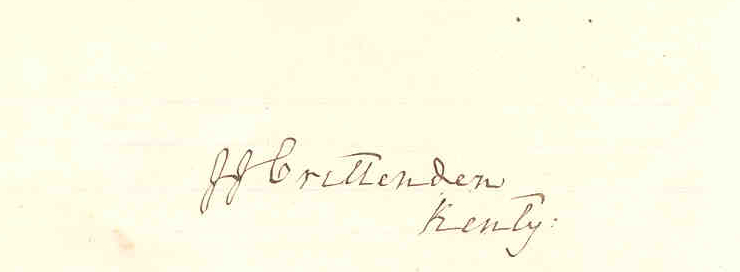 J J Crittenden
Kenty: